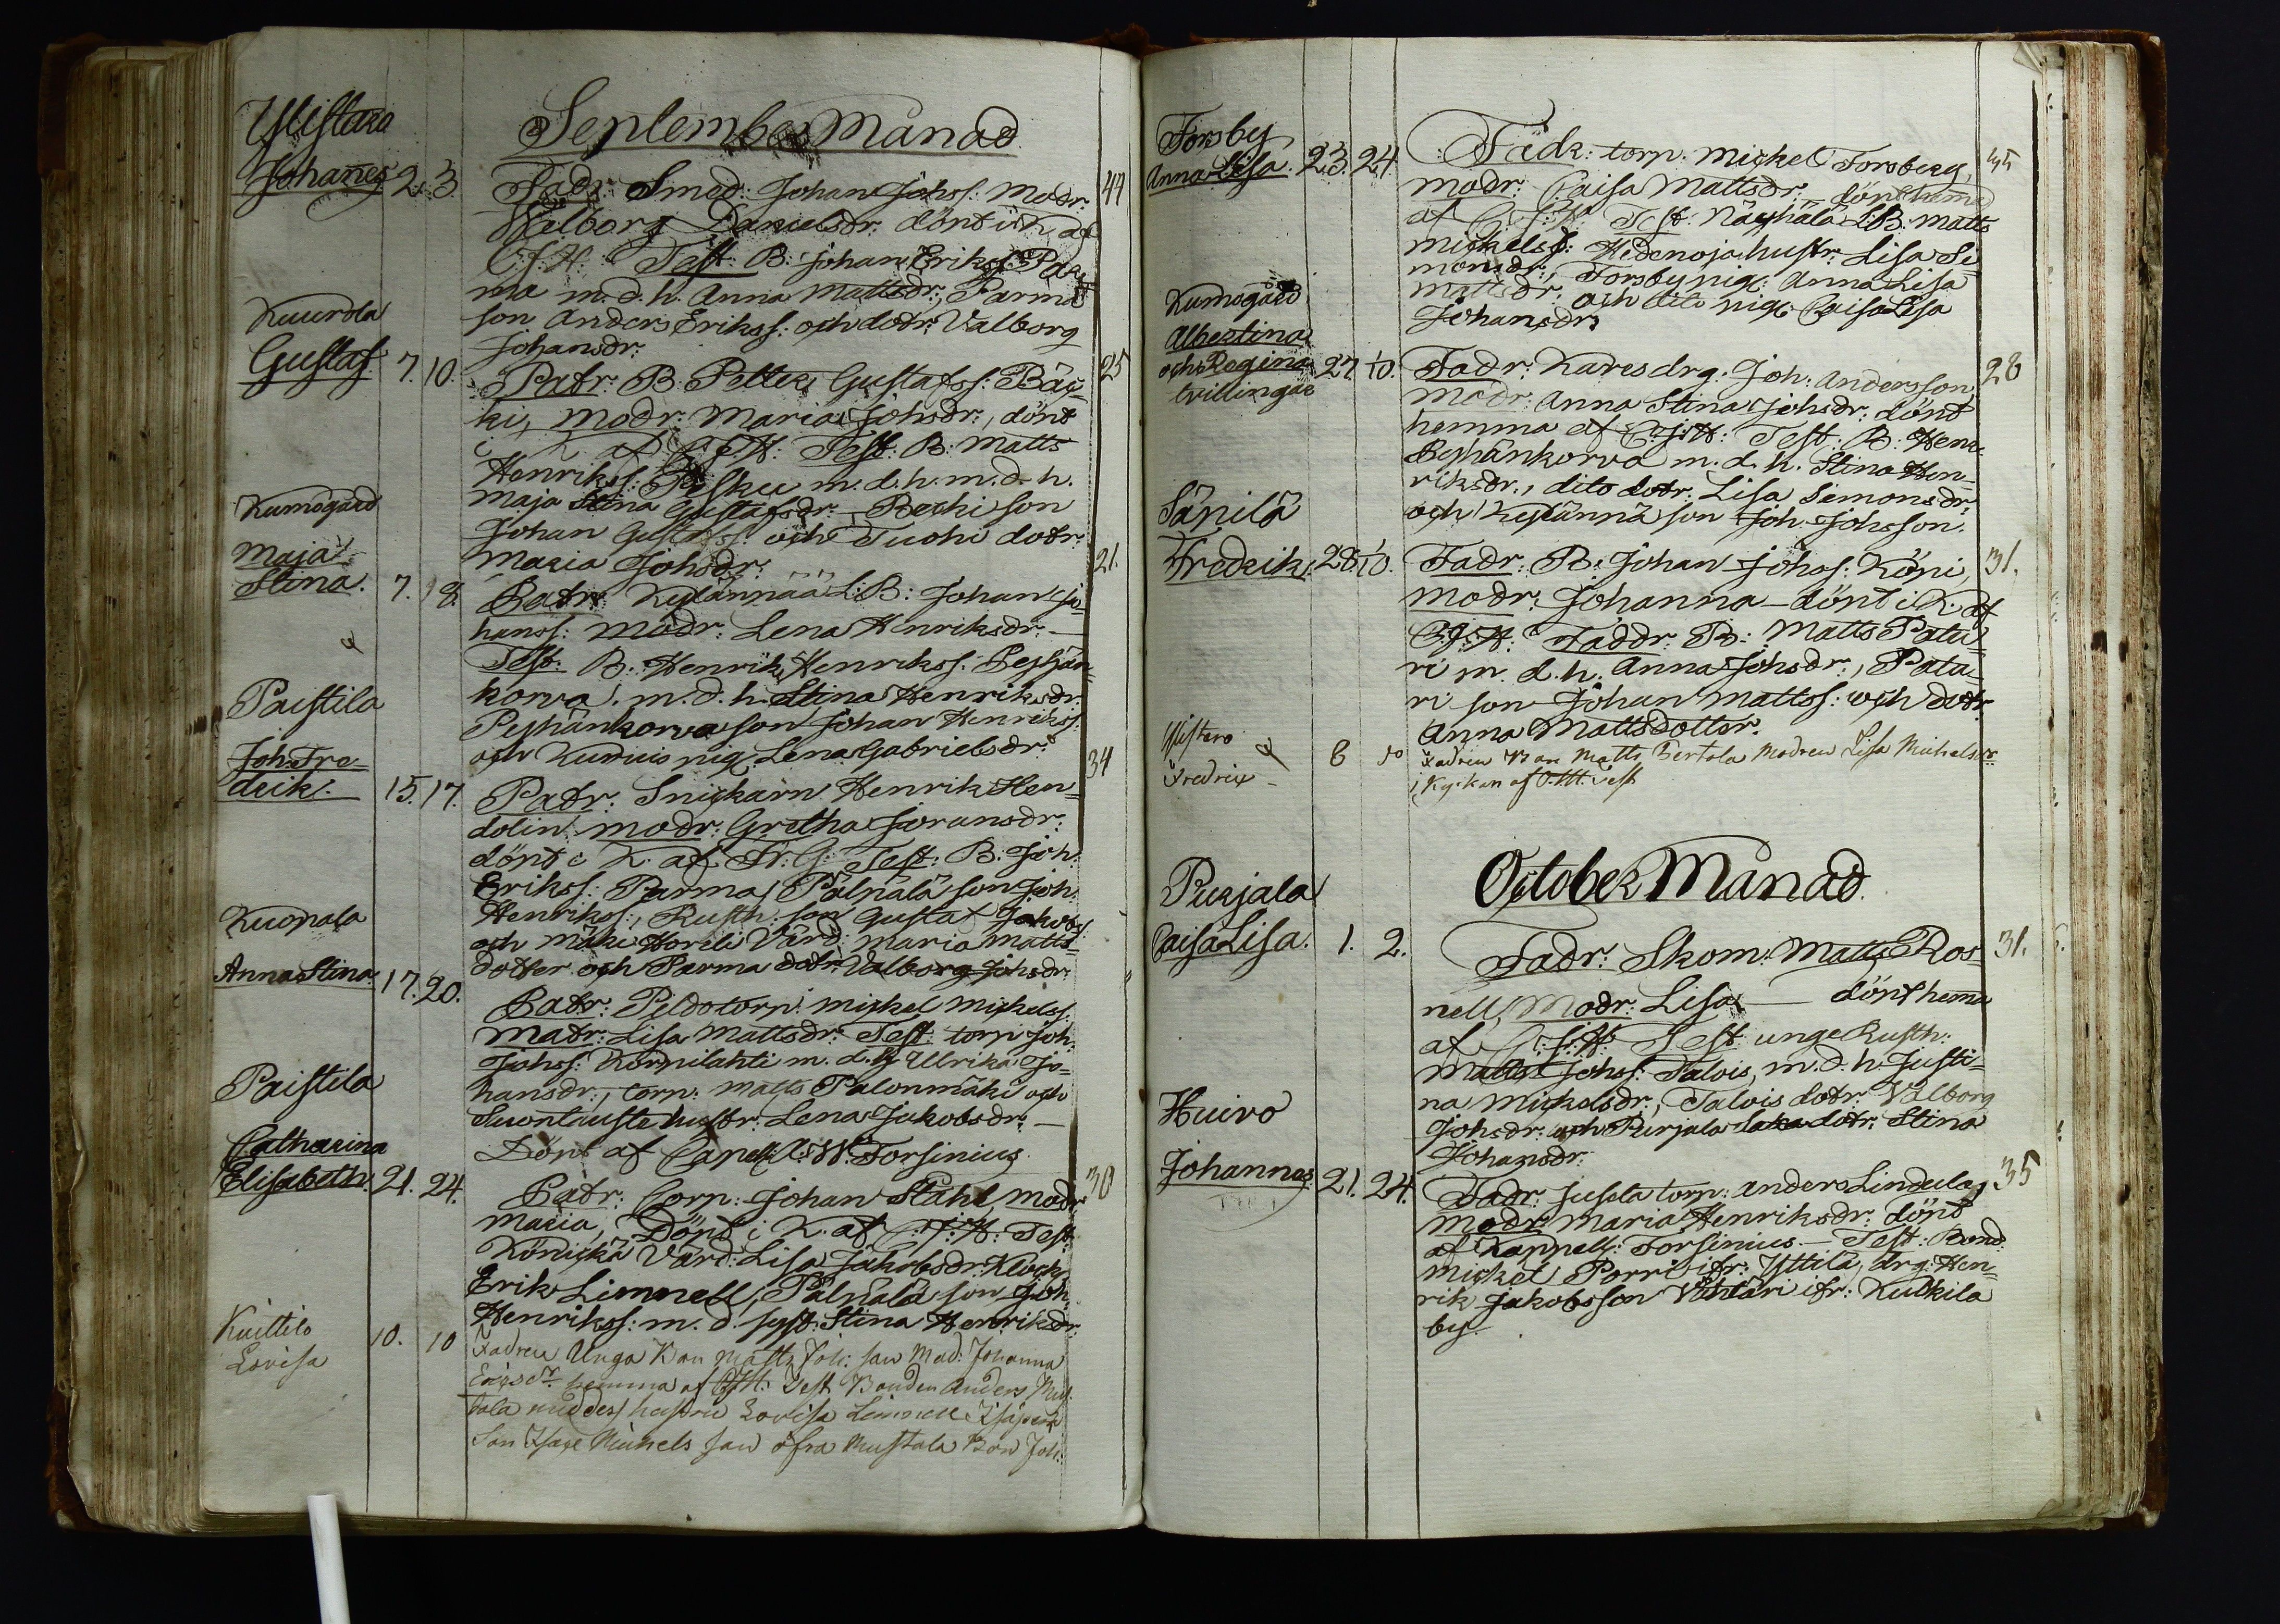 Ylistaro
September Månad
Johanes 2. 3. Fadr: Smed: Johan Johss: Modr: 44
Walborg Danielsdr. dönt i K. af
C. J. H: Test: B: Johan Erikss: Par-
ma m. d. h. Anna Mattsdr:, Parma
son Anders Erikss: och dotr: Valborg
Johansdr:
Kuurola
Gustaf. 7. 10. Patr: B. Petter Gustafss: Bäc- 25
ki, modr: Maria Johsdr:, dönt
i K af C. J. H: Test: B. Matts
Henrikss: m. d. h. m. d. h.
Maja Stina Gustafsdr: Bechi son
Johan Gustafss: och Tuohi dotr:
Maria Johsdr:
Kumogård
Maja
Stina. 7. 8. Patr: Kylänpää L. B: Johan Jo- 21.
hanss: modr: Lena Henriksdr: —
Test: B. Henrik Henrikss: Peshän-
korva, m. d. h. Stina Henriksdr:
Peshänkorva son Johan Henrikss:
och pig. Lena Gabrielsdr:
Paistila
Joh. Fre-
drik. 15. 17. Patr: Snickarn Henrik Hen- 34
dolin modr: Gretha Joransdr:
dönt i K. af Fr. G: Test: B. Joh:
Erikss: Parma, Pälpälä son Joh.
Henrikss:, Rusth. son Gustaf Jakobs:
och Mäki Värd: Maria Matts-
dotter och Parma dotr: Valborg Johsdr:
Kuopala
Anna Stina. 17. 20. Patr: torp: Mickel Mickelss:
Matr: Lisa Mattsdr: Test: torp: Joh:
Johss: Korpilahti m. d. h. Ulrika Jo-
hansdr:, torp: Matts Palonmäki och
hustr: Lena Jakobsdr: —
Dönt af Capell: A: W. Forsinius.
Paistila
Catharina
Elisabeth. 21. 24. Patr: Corp: Johan Ståhl, modr: 30
Maria, Dönt i K. af C. J. H. Test.
Könickä Värd: Lisa Jakobsdr: Klock:
Erik Limnell, Pälpälä son Joh:
Henrikss: m. d. syst. Stina Henriksdr:
Kuittilo
Lovisa 10. 10 Fadren Unga Bon Matts Joh: son Mod: Johanna
Ericsdr: hemma af CJH: Test Bonden Anders Mus-
tala med dess hustru Lovisa Limnell
Son Isac Michels son öfra Mustala Bon Joh:
Forsby
Anna Lisa. 23. 24. Fadr: torp: Mickel Forsberg, 45
modr: Caisa Mattsdr: dönt hemma
af C. J. H: Test: Näyhälä L: B. Matts
Mickelss: Hedenoja hustr: Lisa Si-
monsdr:, Forsby pig: Anna Lisa
Mattsdr: och dito pig: Caisa Lisa
Johansdr:
Kumogård
Albertina
och Regina 27. 10. Fadr: Kares drg. Joh. Andersson 28
tvillingar
modr: Anna Stina Johsdr: dönt
hemma af C. J. H: Test: B: Henr.
Peshänkorva m. d. h. Stina Hen-
riksdr:, dito dotr: Lisa Simonsdr:
och Kylänpä son Joh. Johsson.
Sänilä
Fredrik. 28. 10. Fadr: B: Johan Johss: Köni, 31.
modr: Johanna — dönt i K. af
C. J. H: Faddr: B: Matts Patu-
ri m. d. h. Anna Johsdr:, Patu-
ri son Johan Mattss: och dotr:
Anna Mattsdotter.
Ylistaro
Fredrik 6 10 Fadren Bon Matts Bertola Modren Lisa Michelsdr:
i Kyrkan af Test
October Månad
Purjala
Caisa Lisa. 1. 2. Fadr: Skom. Matts Ros- 31.
nell, Modr: Lisa — dönt hemma
af C. J. H. Test: unge Rusth:
Matts Johss: Talvis, m. d. h. Justi-
na Mickelsdr:, Talvis dotr: Valborg
Johsdr: och Purjala dotr: Stina
Johansdr:
Huivo
Johannes 21. 24. Fadr: Jusela torp: Anders Lindula, 35
Modr: Maria Henriksdr: dönt
af Kappell: Forsinius — Test: Bond
Mickel Porri ifr: Yttilä, drg: Hen-
rik Jakobsson Vähtäri ifr: Kulkila
by.